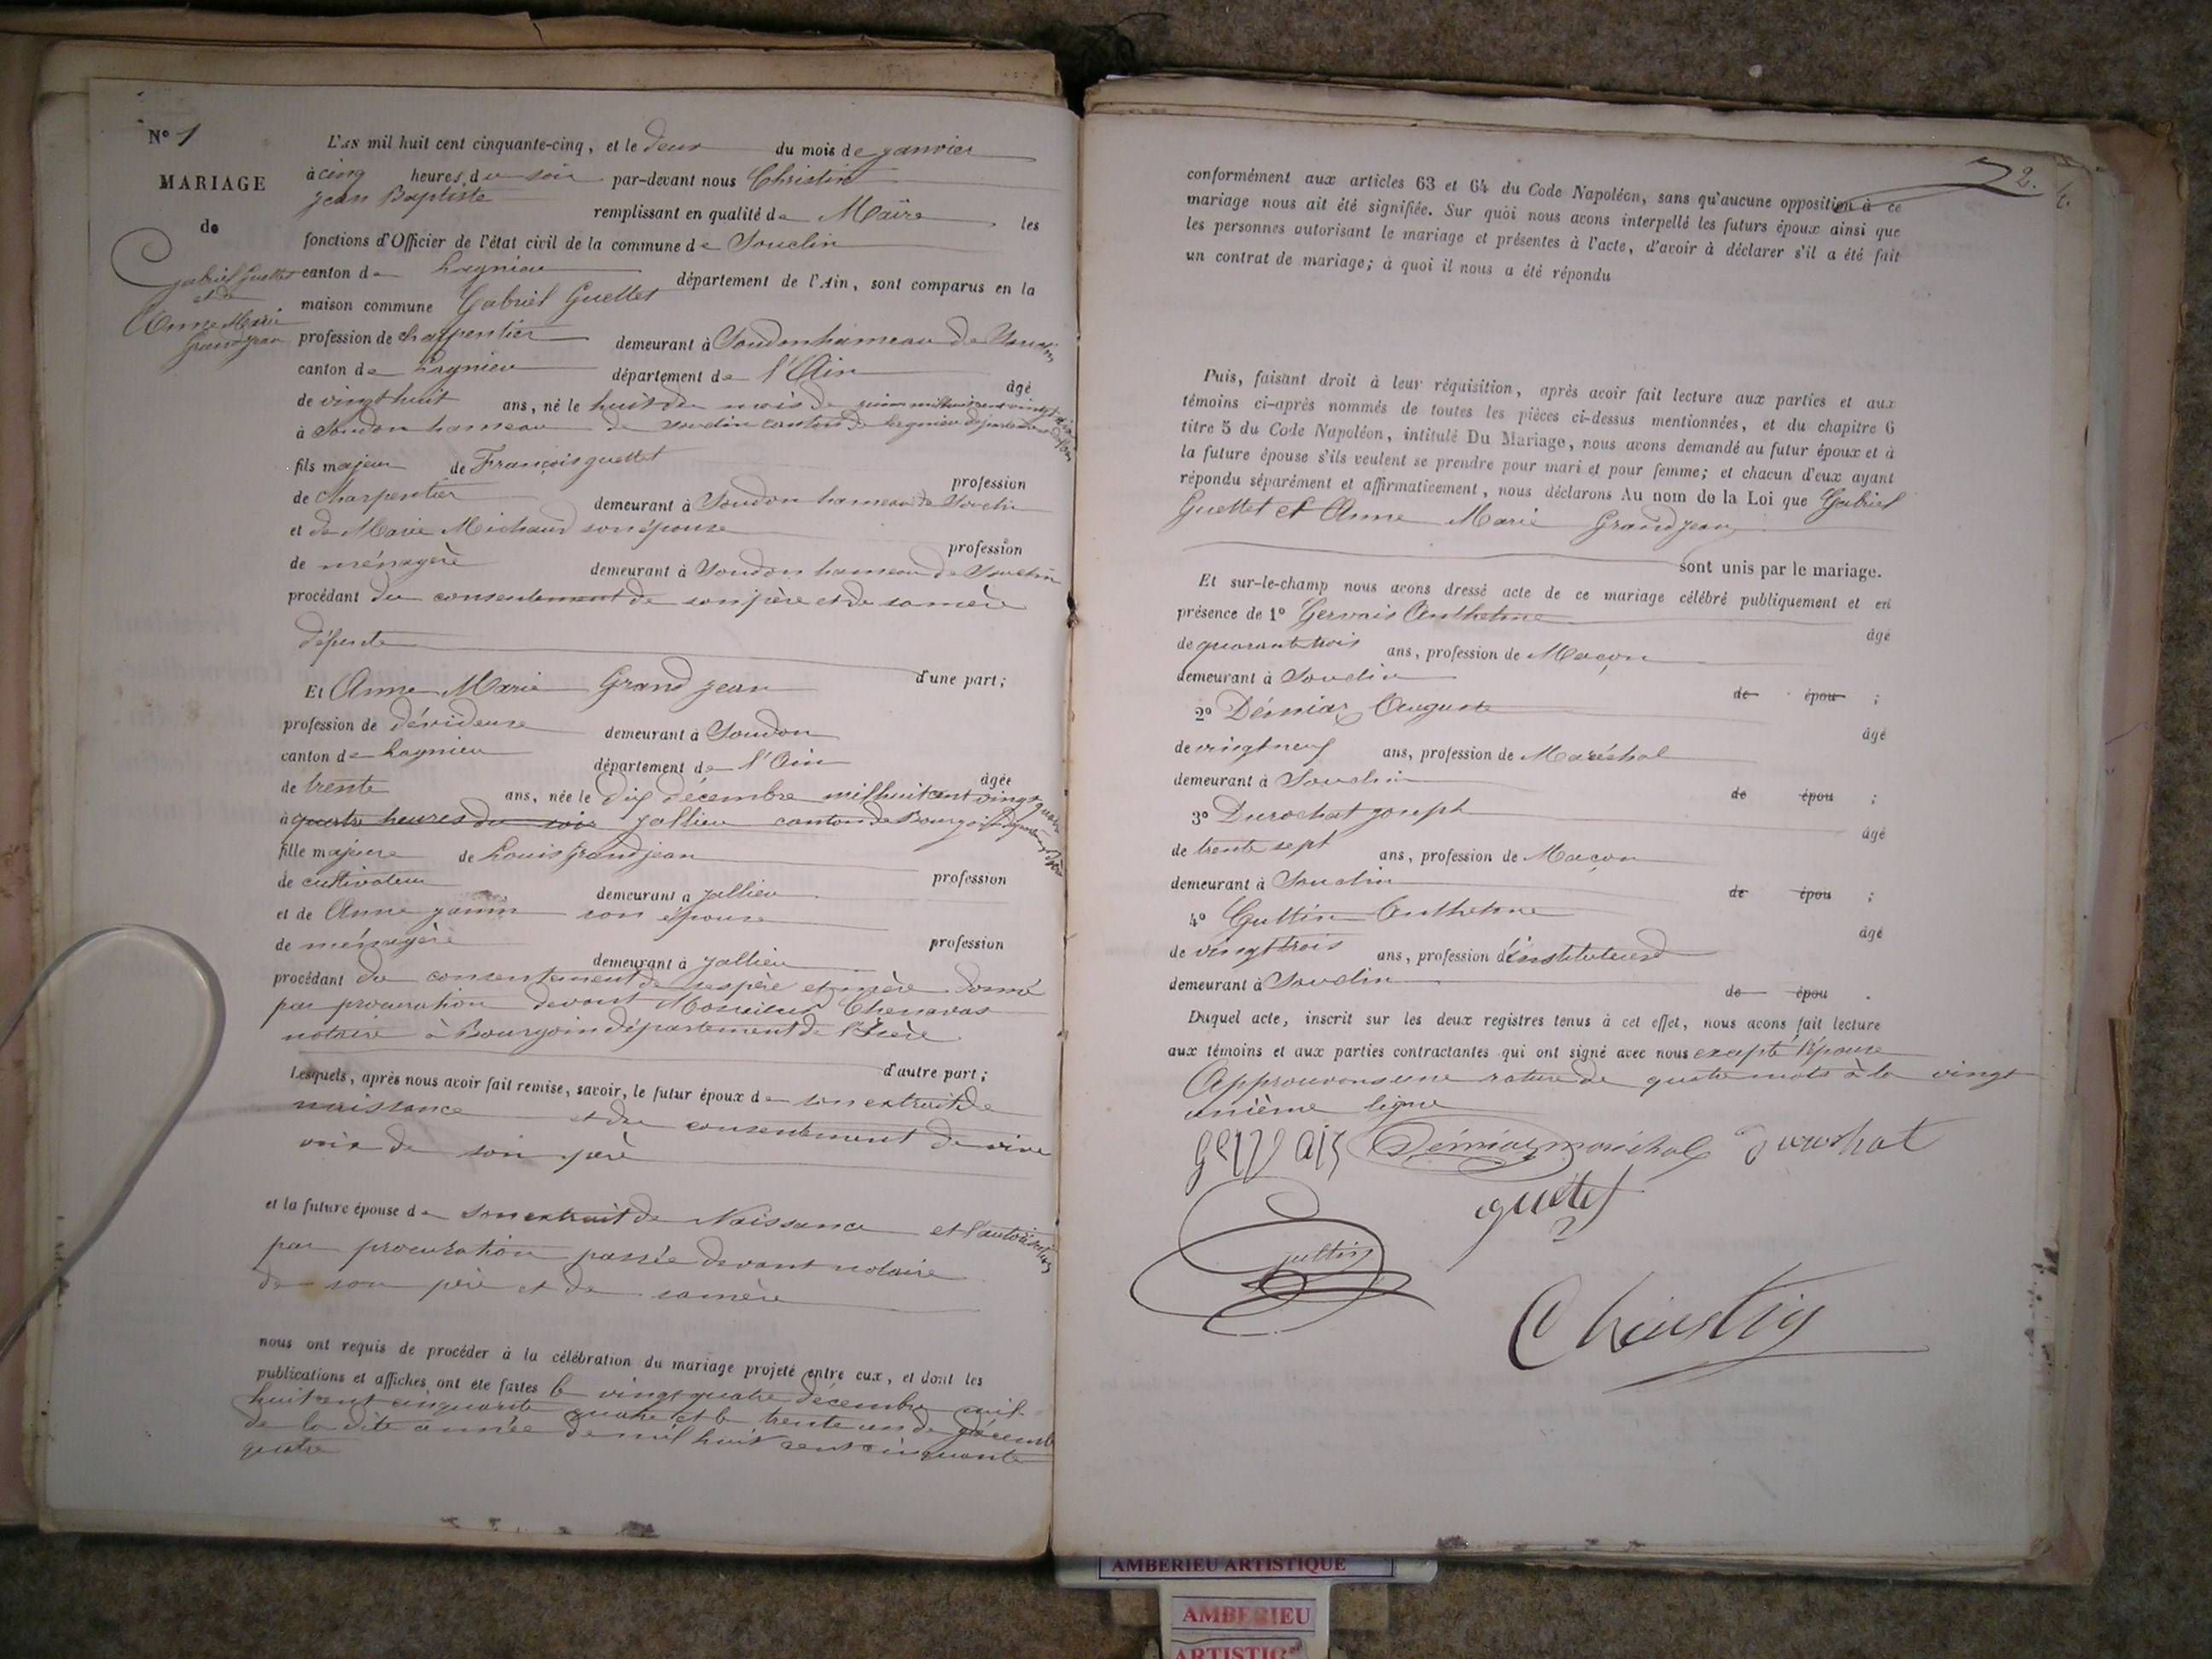 N° 1
MARIAGE
de
Gabriel Guettet
et de
Anne Marie
Grandjean
L'AN mil huit cent cinquante-cinq, et le deux du mois de janvier
à cinq heures du soir par-devant nous Christin
Jean Baptiste remplissant en qualité de Maire les
fonctions d'Officier de l'état civil de la commune de Souclin
canton de Lagnieu département de l'Ain, sont comparus en la
maison commune Gabriel Guettet
profession de charpentier demeurant à Soudon hameau de Souclin
canton de Lagnieu département de l'Ain âgé
de vingt huit ans, né le huit du mois de mil huit cent vingt
à Soudon hameau de Souclin canton de Lagnieu département de l'Ain
fils majeur de François guettet profession
de charpentier demeurant à Soudon hameau de Souclin
et de Marie Michaud son épouse profession
de ménagère demeurant à Soudon hameau de Souclin
procédant du consentement de son père et de sa mère
d'une part;
Et Anne Marie Grand jean
profession de dévideuse demeurant à Soudon
canton de Lagnieu département de l'Ain âgée
de trente ans, née le dix décembre mil huit cent vingt quatre
à quatre heures du soir Jallieu canton de Bourgoin département de l'Isère
fille majeure de Louis Grandjean profession
de cultivateur demeurant à Jallieu
et de Anne son épouse profession
de ménagère demeurant à Jallieu
procédant du consentement de ses père et mère donné
par procuration devant Monsieur Chenavas
notaire à Bourgoin département de l'Isère
d'autre part;
Lesquels, après nous avoir fait remise, savoir, le futur époux de son extrait de
naissance et du consentement de vive
voix de son père
et la future épouse de son extrait de Naissance et l'autorisation
par procuration passée devant notaire
de son père et de sa mère
nous ont requis de procéder à la célébration du mariage projeté entre eux, et dont les
publications et affiches ont été faites le vingt quatre décembre mil
huit cent cinquante quatre et le trente un de décembre
de la dite année de mil huit cent cinquante
quatre
2.
conformément aux articles 63 et 64 du Code Napoléon, sans qu'aucune opposition à ce
mariage nous ait été signifiée. Sur quoi nous avons interpellé les futurs époux ainsi que
les personnes autorisant le mariage et présentes à l'acte, d'avoir à déclarer s'il a été fait
un contrat de mariage; à quoi il nous a été répondu
Puis, faisant droit à leur réquisition, après avoir fait lecture aux parties et aux
témoins ci-après nommés de toutes les pièces ci-dessus mentionnées, et du chapitre 6
titre 5 du Code Napoléon, intitulé Du Mariage, nous avons demandé au futur époux et à
la future épouse s'ils veulent se prendre pour mari et pour femme; et chacun d'eux ayant
répondu séparément et affirmativement, nous déclarons Au nom de la Loi que Gabriel
Guettet et Anne Marie Grandjean
sont unis par le mariage.
Et sur-le-champ nous avons dressé acte de ce mariage célébré publiquement et en
présence de 1° Gervais Anthelme âgé
de quarante trois ans, profession de Maçon
demeurant à Souclin de épou ;
2° Démiaz Auguste âgé
de vingt neuf ans, profession de Maréchal
demeurant à Souclin de épou ;
3° Durochat joseph âgé
de trente sept ans, profession de Maçon
demeurant à Souclin de épou ;
4° Guttin Anthelme âgé
de vingt trois ans, profession d'instituteur
demeurant à Souclin de épou .
Duquel acte, inscrit sur les deux registres tenus à cet effet, nous avons fait lecture
aux témoins et aux parties contractantes qui ont signé avec nous excepté l'épouse
Approuvons une rature de quatre mots à la vingt
unième ligne
gervais Démiaz maréchal durochat
guetet
guttin
Christin
AMBERIEU ARTISTIQUE
AMBERIEU
ARTISTIQ